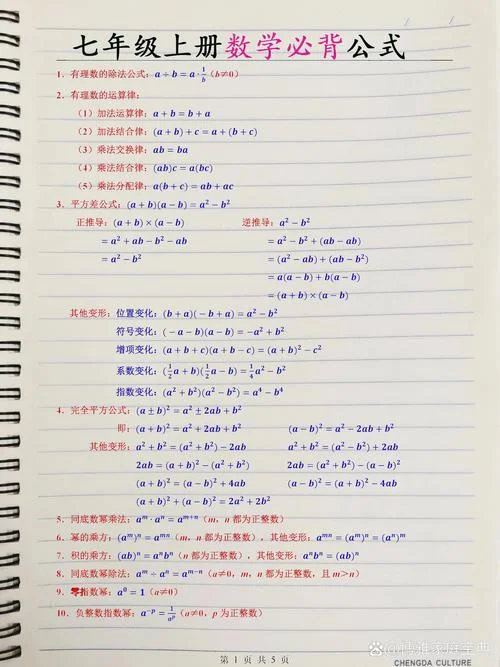 七年级上册数学必背公式
1. 有理数的除法公式：a ÷ b = a · 1/b (b≠0)
2. 有理数的运算律：
(1) 加法运算律：a + b = b + a
(2) 加法结合律：(a + b) + c = a + (b + c)
(3) 乘法交换律：ab = ba
(4) 乘法结合律：(ab)c = a(bc)
(5) 乘法分配律：a(b + c) = ab + ac
3. 平方差公式：(a + b)(a − b) = a² − b²
正推导：(a + b) × (a − b) 逆推导：a² − b²
= a² + ab − b² − ab = a² − b² + (ab − ab)
= a² − b² = (a² − ab) + (ab − b²)
= a(a − b) + b(a − b)
= (a + b) × (a − b)
其他变形：位置变化：(b + a)(−b + a) = a² − b²
符号变化：(−a − b)(a − b) = −a² + b²
增项变化：(a + b + c)(a + b − c) = (a + b)² − c²
系数变化：(1/2 a + b)(1/2 a − b) = 1/4 a² − b²
指数变化：(a² + b²)(a² − b²) = a⁴ − b⁴
4. 完全平方公式：(a ± b)² = a² ± 2ab + b²
即：(a + b)² = a² + 2ab + b² (a − b)² = a² − 2ab + b²
其他变形：a² + b² = (a² + b²) − 2ab a² + b² = (a² − b²) + 2ab
2ab = (a + b)² − (a² + b²) 2ab = (a² + b²) − (a − b)²
(a + b)² = (a − b)² + 4ab (a − b)² = (a + b)² − 4ab
(a + b)² + (a − b)² = 2a² + 2b²
5. 同底数幂乘法：aᵐ · aⁿ = aᵐ⁺ⁿ (m，n 都为正整数)
6. 幂的乘方：(aᵐ)ⁿ = aᵐⁿ (m，n 都为正整数)，其他变形：aᵐⁿ = (aᵐ)ⁿ = (aⁿ)ᵐ
7. 积的乘方：(ab)ⁿ = aⁿbⁿ (n 都为正整数)，其他变形：aⁿbⁿ = (ab)ⁿ
8. 同底数幂除法：aᵐ ÷ aⁿ = aᵐ⁻ⁿ (a≠0，m，n 都为正整数，且 m＞n)
9. 零指数幂：a⁰ = 1 (a≠0)
10. 负整数指数幂：a⁻ᵖ = 1/aᵖ (a≠0，p 为正整数)
第 1 页 共 5 页
CHENGDA CULTURE